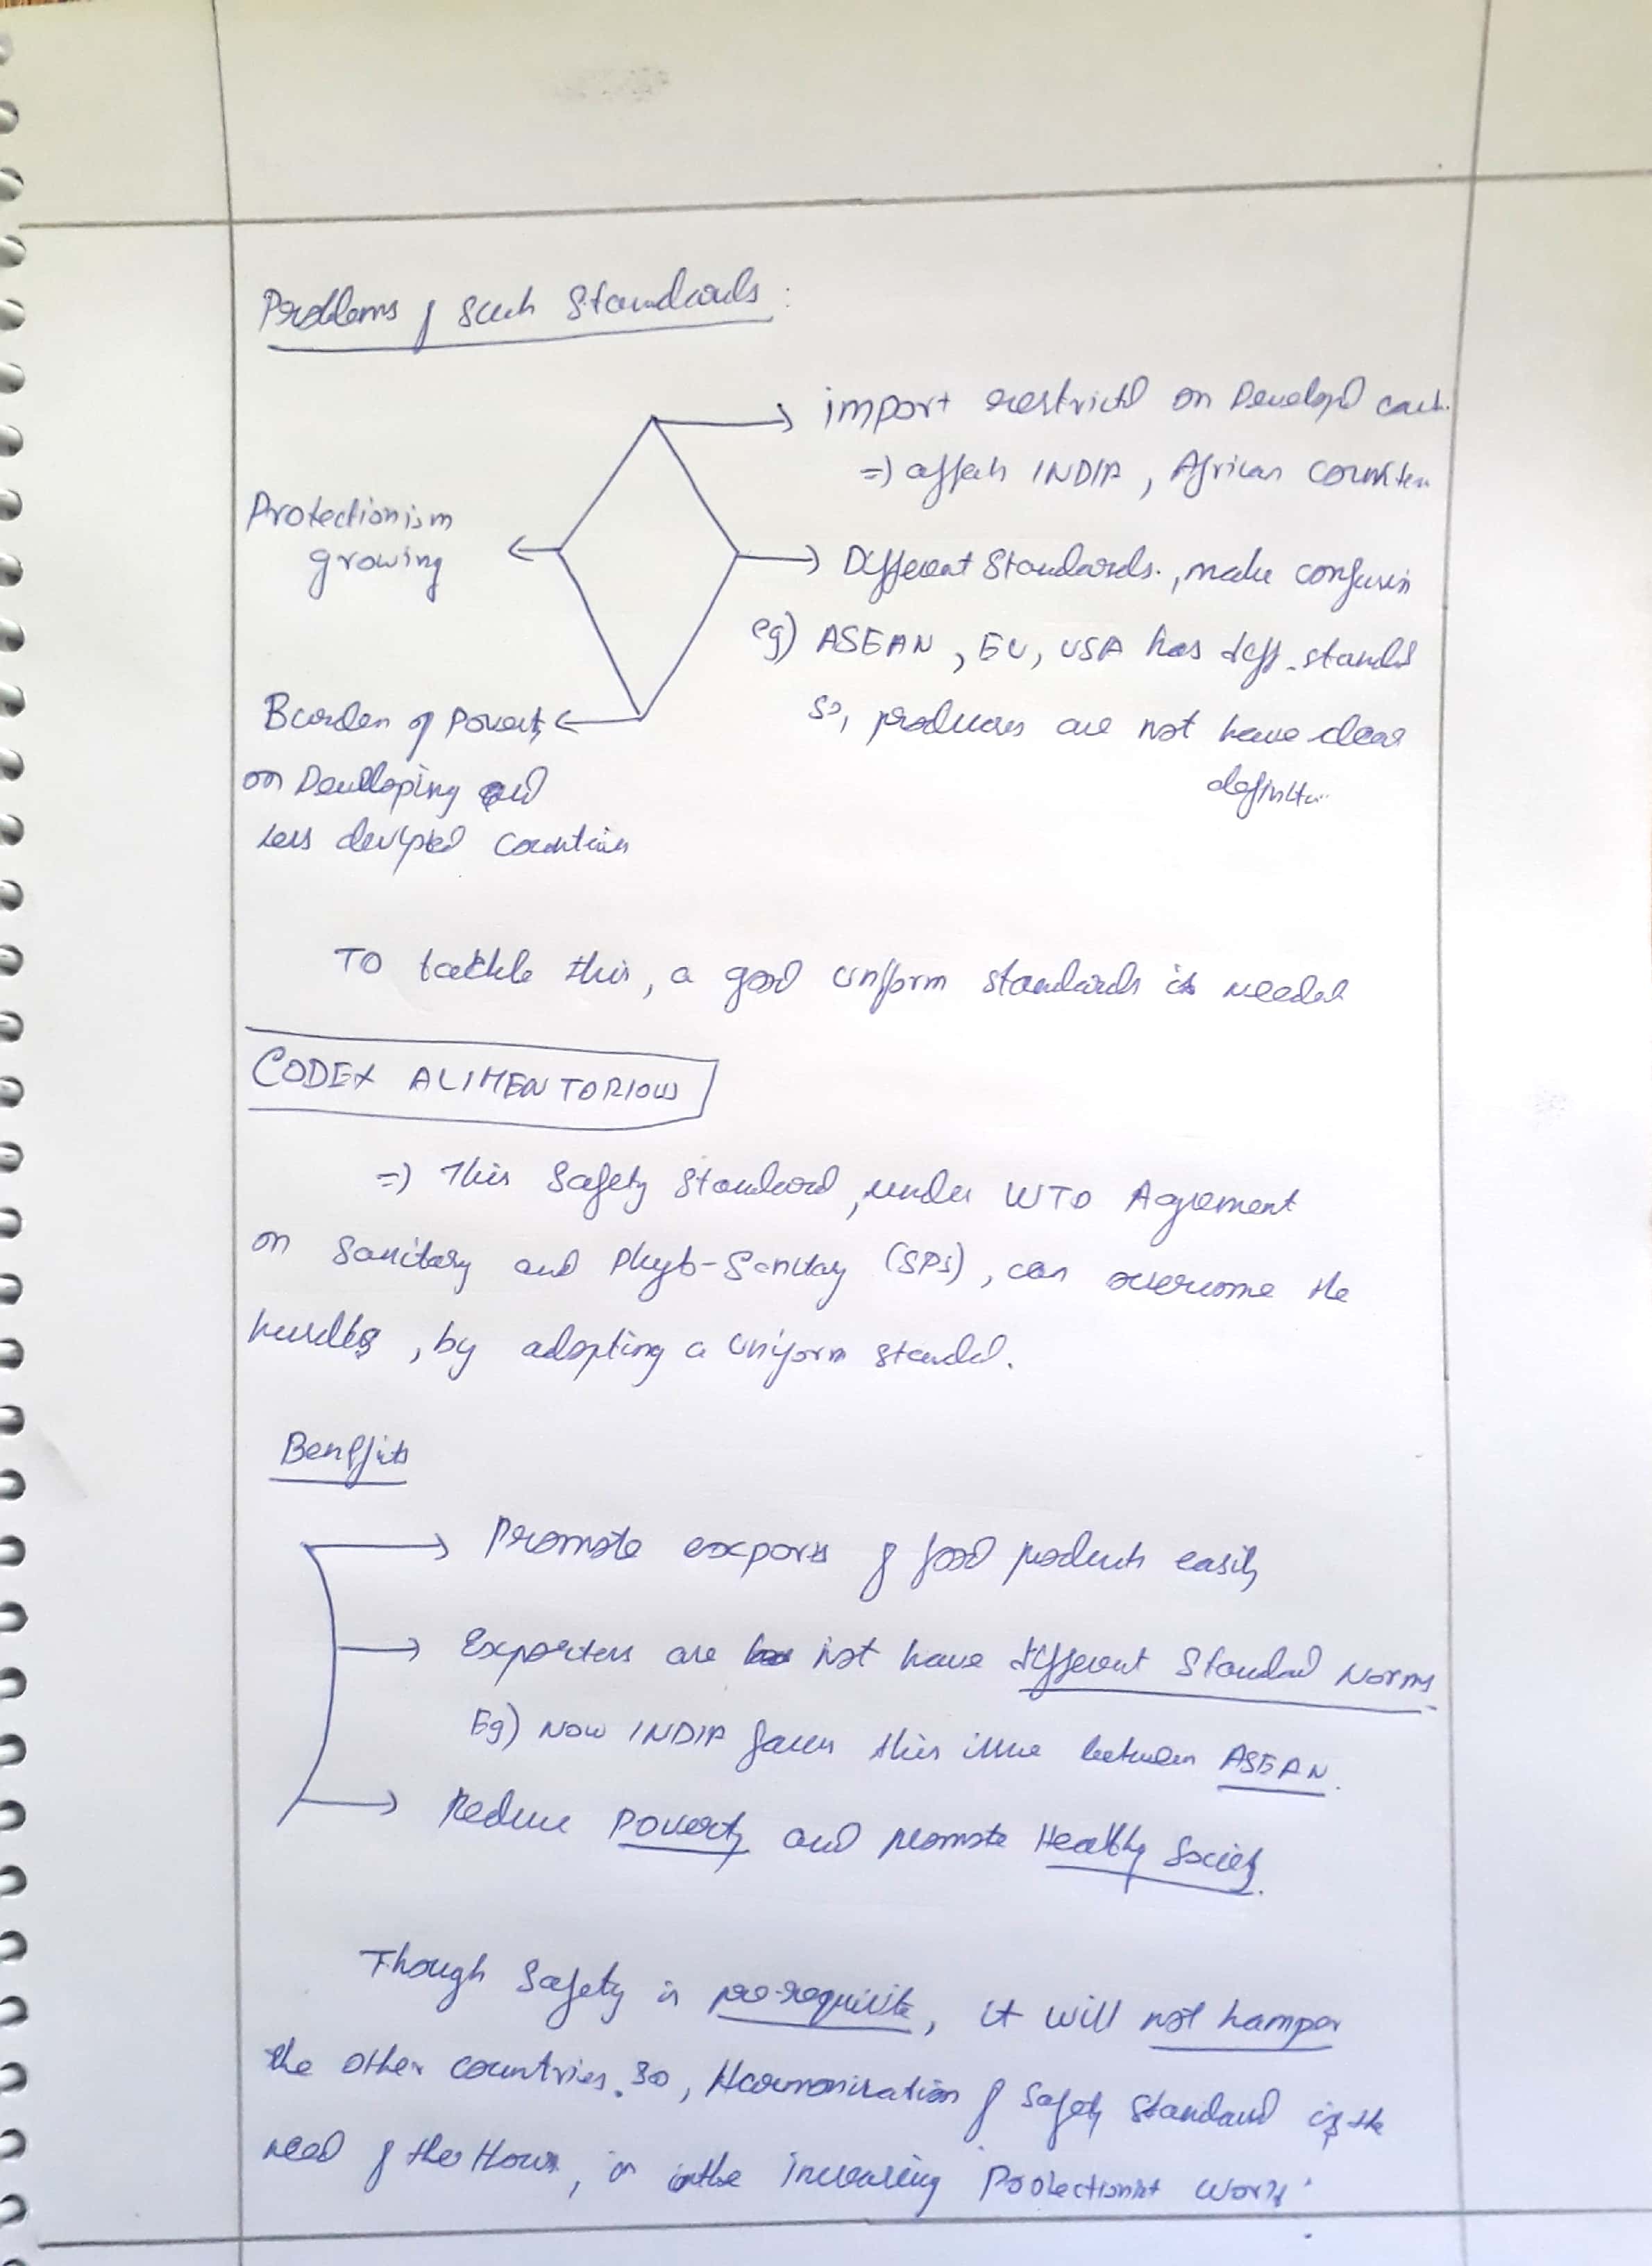 Problems of such Standards :
import restrictd on Developd cout.
=) affects INDIA, African Countries
Protectionism
growing
Different Standards., make confusion
eg) ASEAN, EU, USA has diff. standd
So, producers are not have clear
definition
Burden of Poverty
on Developing and
Less develped Countries
To tackle this, a good uniform standards is needed
CODEX ALIMENTORIOUS
=) This Safety Standard, under WTO Agreement
on Sanitary and Phyto-Sanitay (SPS), can overcome the
hurdles, by adopting a Uniform standd.
Benefits
Promote exports of food products easily
Exporters are not have different Standad Norms
Eg) Now INDIA faces this issue between ASEAN.
Reduce Poverty and promote Healthy Society.
Though Safety is pre-requisite, it will not hamper
the other countries. So, Harmonisation of Safety Standard is the
need of the Hour, in the increasing Protectionist World.